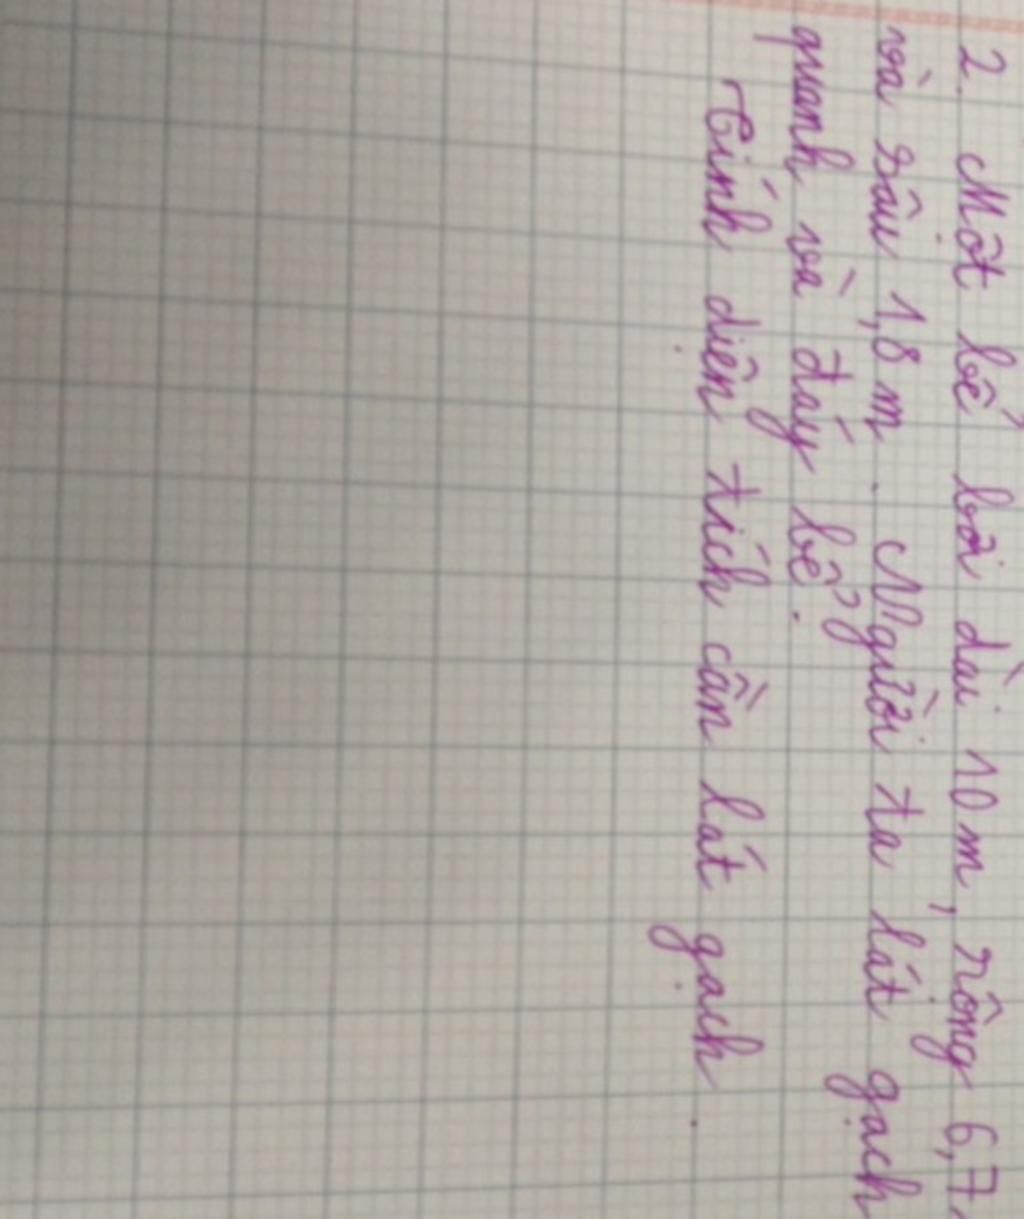 2. Một bể bơi dài 10 m, rộng 6,7
và sâu 1,8 m. Người ta lát gạch
quanh và đáy bể.
Tính diện tích cần lát gạch.